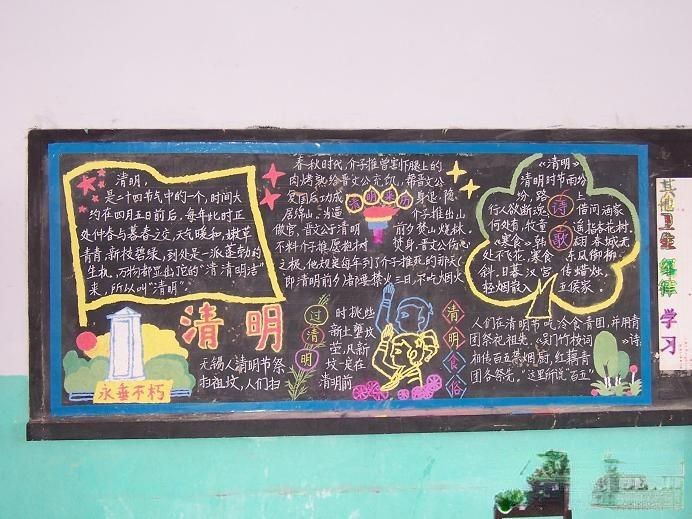 清明,
是二十四节气中的一个,时间大
约在四月五日前后,每年此时正
处仲春与暮春之交,天气暖和,嫩草
青青,新枝碧绿,到处是一派蓬勃的
生机,万物都显出它的"清清明洁"
来,所以叫"清明"。
清明
永垂不朽
无锡人清明节祭
扫祖坟,人们扫
春秋时代,介子推曾割下腿上的
肉烤熟给晋文公充饥,帮晋文公
复国后功成身退,隐
居绵山,为逼介子推出山
做官,晋文公于清明前夕焚山烧林,
不料介子推愿抱树焚身,晋文公伤心
之极,他规定每年到了介子推死的那天
即清明前夕禁火三日,不吃烟火
清明来历
过清明
时挑些
新土壅坟
茔,凡新
坟一定在
清明前
清明食俗
《清明》
清明时节雨纷
纷,路上
行人欲断魂,借问酒家
何处有,牧童遥指杏花村。
《寒食》韩翃 春城无
处不飞花,寒食东风御柳
斜,日暮汉宫传蜡烛,
轻烟散入五侯家。
诗歌
人们在清明节吃冷食青团,并用青
团祭祀祖先,《吴门竹枝词》诗,
相传百五禁烟厨,红藕青
团各祭先,"这里所说"百五"
其他卫生
学习